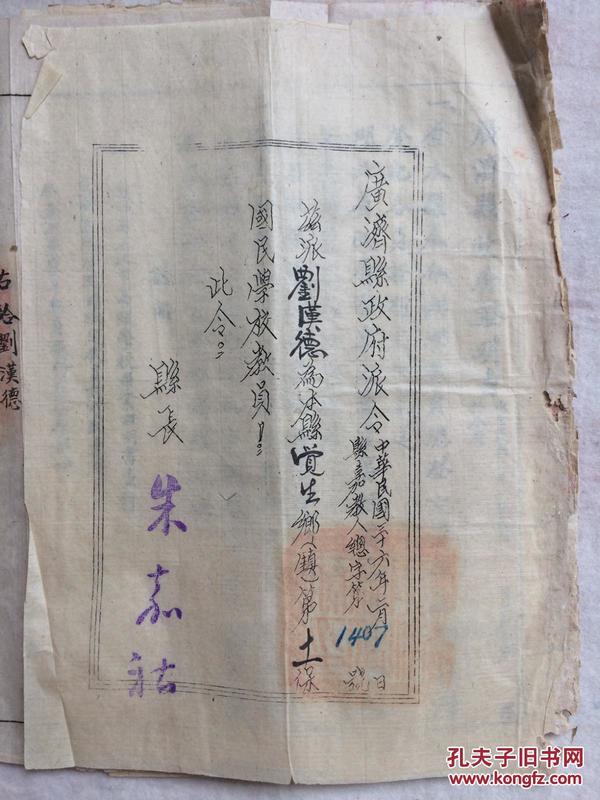 廣濟縣政府派令
中華民國三十六年二月 日
縣嘉教人總字第1407號
茲派劉漢德為本縣覚生鄉(鎮)第十一保
國民學校教員!。
此令。
縣長
朱嘉祜
右給劉漢德
孔夫子旧书网
www.kongfz.com